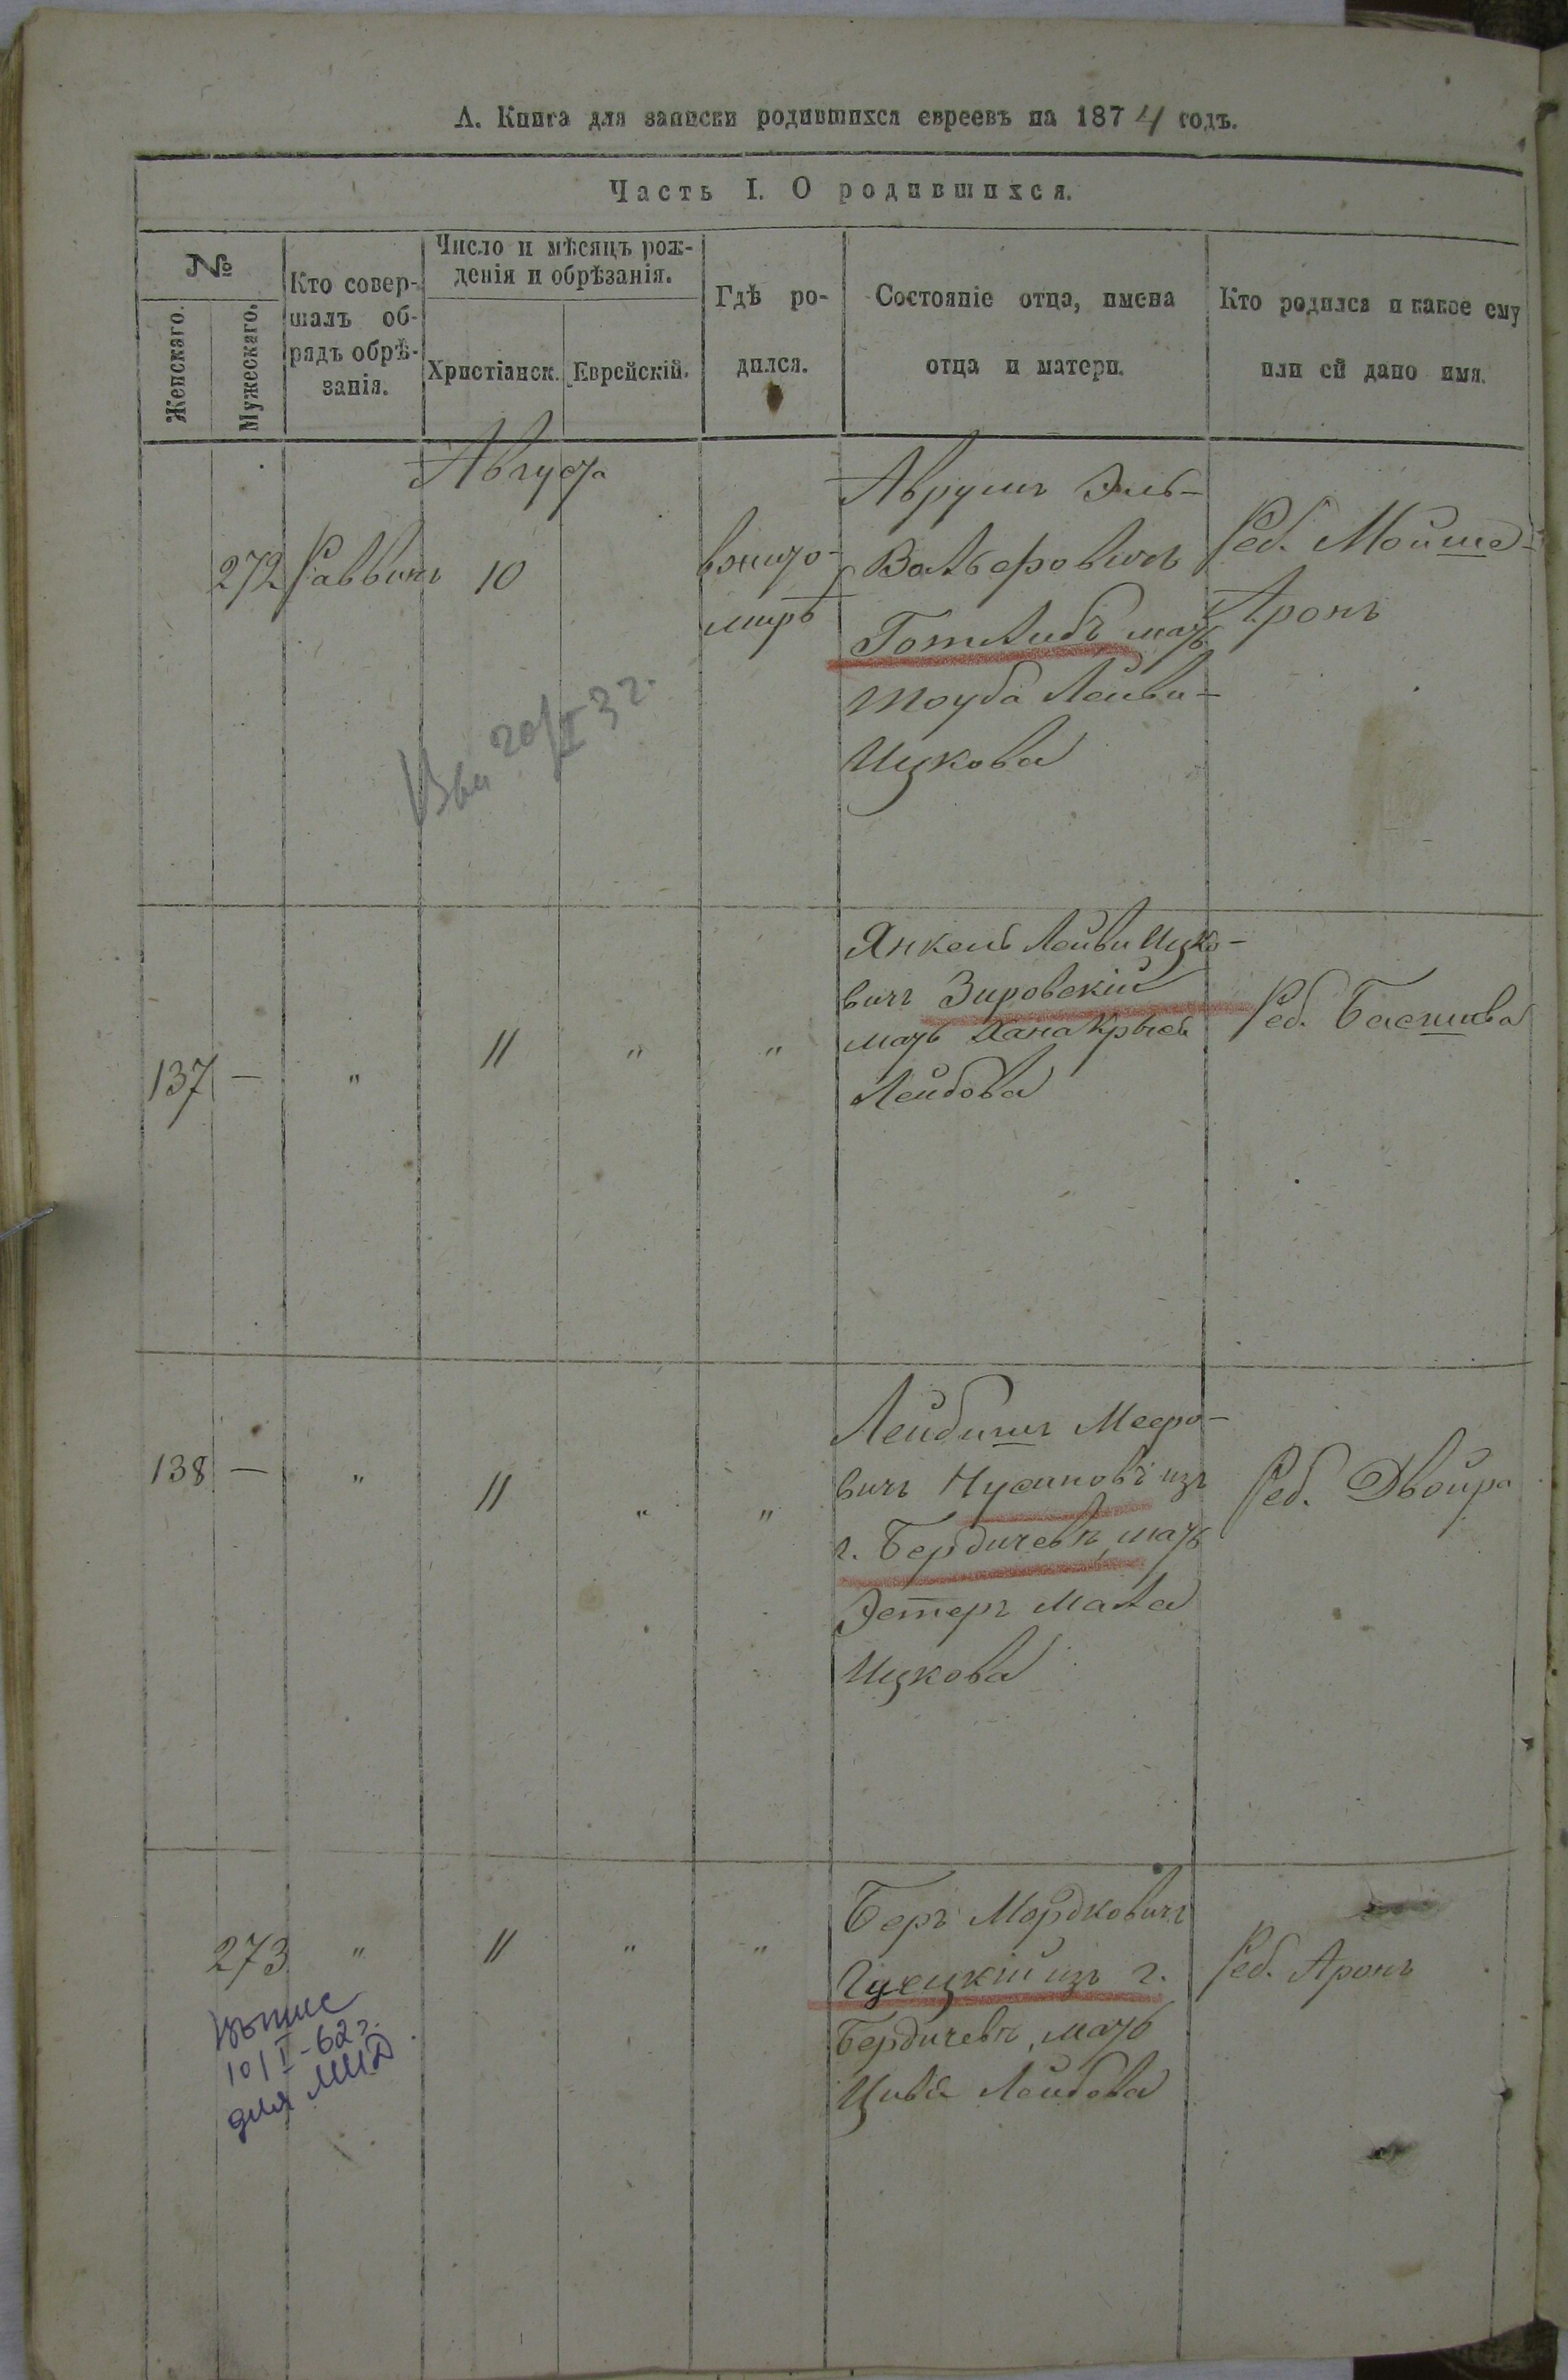 А. Книга для записки родившихся евреевъ на 1874 годъ.
Часть I. О родившихся.
№
Женскаго.
Мужескаго.
Кто совер-
шалъ об-
рядъ обрѣ-
занія.
Число и мѣсяцъ рож-
денія и обрѣзанія.
Христіанск.
Еврейскій.
Гдѣ ро-
дился.
Состояніе отца, имена
отца и матери.
Кто родился и какое ему
или ей дано имя.
Августа
272
Раввинъ
10
вжито-
мирѣ
Аврумъ Эль-
Вольфовичъ
Готлибъ, мать
Тоуба Лейви-
Ицкова
Реб. Мойше-
Аронъ
20/X 32.
137
—
"
11
"
"
Янкель Лейви Ицко-
вичъ Зировскій
мать Хана Крысей
Лейбова
Реб. Басшива
138
—
"
11
"
"
Лейбишъ Мееро-
вичъ Нусиновъ изъ
г. Бердичева, мать
Эстеръ Мала
Ицкова
Реб. Двойра
273
"
11
"
"
Беръ Мордковичъ
изъ г.
Бердичева, мать
Цивья Лейбова
Реб. Аронъ
10/I-62г.
для МИД